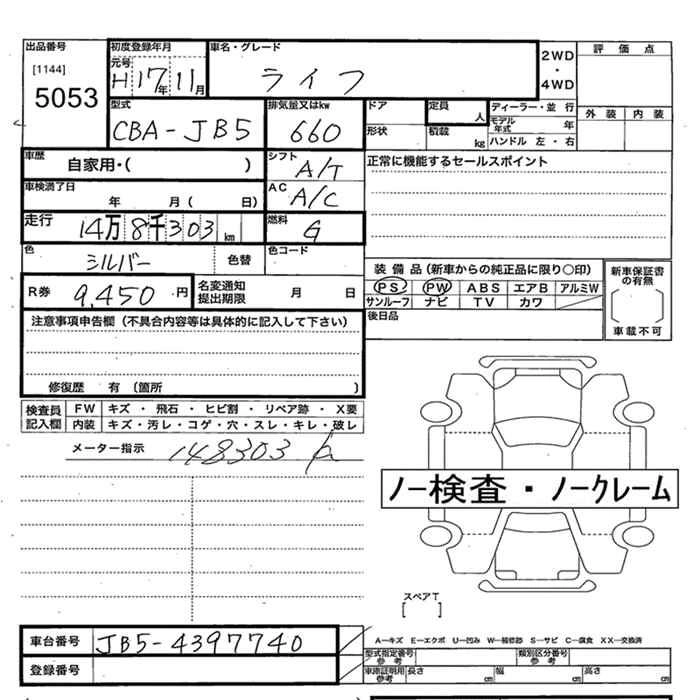 出品番号 初度登録年月 車名・グレード
[1144] 元号
5053 H 17年 11月 ライフ
2WD・4WD
評価点
外装 内装
型式 CBA-JB5
排気量又はkw 660
ドア 形状
定員 人
積載 kg
ディーラー・並行
モデル年式 年
ハンドル 左・右
車歴 自家用・( )
シフト A/T
正常に機能するセールスポイント
車検満了日 年 月( 日)
AC A/C
走行 14万8千303km
燃料 G
色 シルバー 色替
色コード
R券 9,450円
名変通知提出期限 月 日
装備品(新車からの純正品に限り○印)
PS PW ABS エアB アルミW
サンルーフ ナビ TV カワ
新車保証書の有無
車載不可
後日品
注意事項申告欄(不具合内容等は具体的に記入して下さい)
修復歴 有(箇所 )
検査員記入欄
FW キズ・飛石・ヒビ割・リペア跡・X要
内装 キズ・汚レ・コゲ・穴・スレ・キレ・破レ
メーター指示 148303
ノー検査・ノークレーム
スペアT
[ ]
車台番号 JB5-4397740
登録番号
A―キズ E―エクボ U―凹み W―補修跡 S―サビ C―腐食 XX―交換済
型式指定番号 参考
類別区分番号 参考
車庫証明用 参考 長さ cm 幅 cm 高さ cm